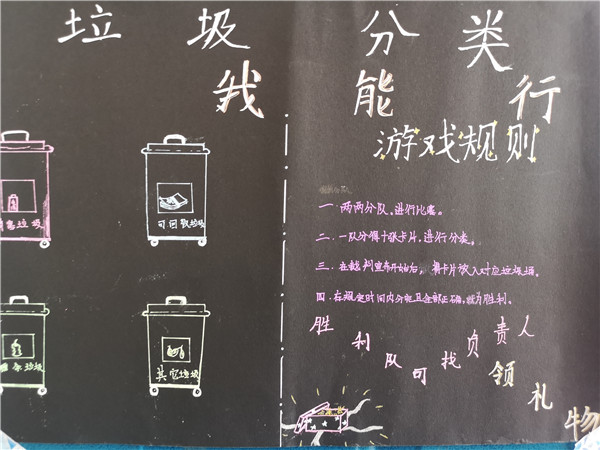 垃圾分类
我能行
游戏规则
害垃圾
可回收垃圾
余垃圾
其它垃圾
一. 两两分队,进行比赛。
二. 一队分得十张卡片,进行分类。
三. 在裁判宣布开始后, 将卡片放入对应垃圾桶。
四. 在规定时间内分完且全部正确,视为胜利。
胜利队可找负责人
领礼物